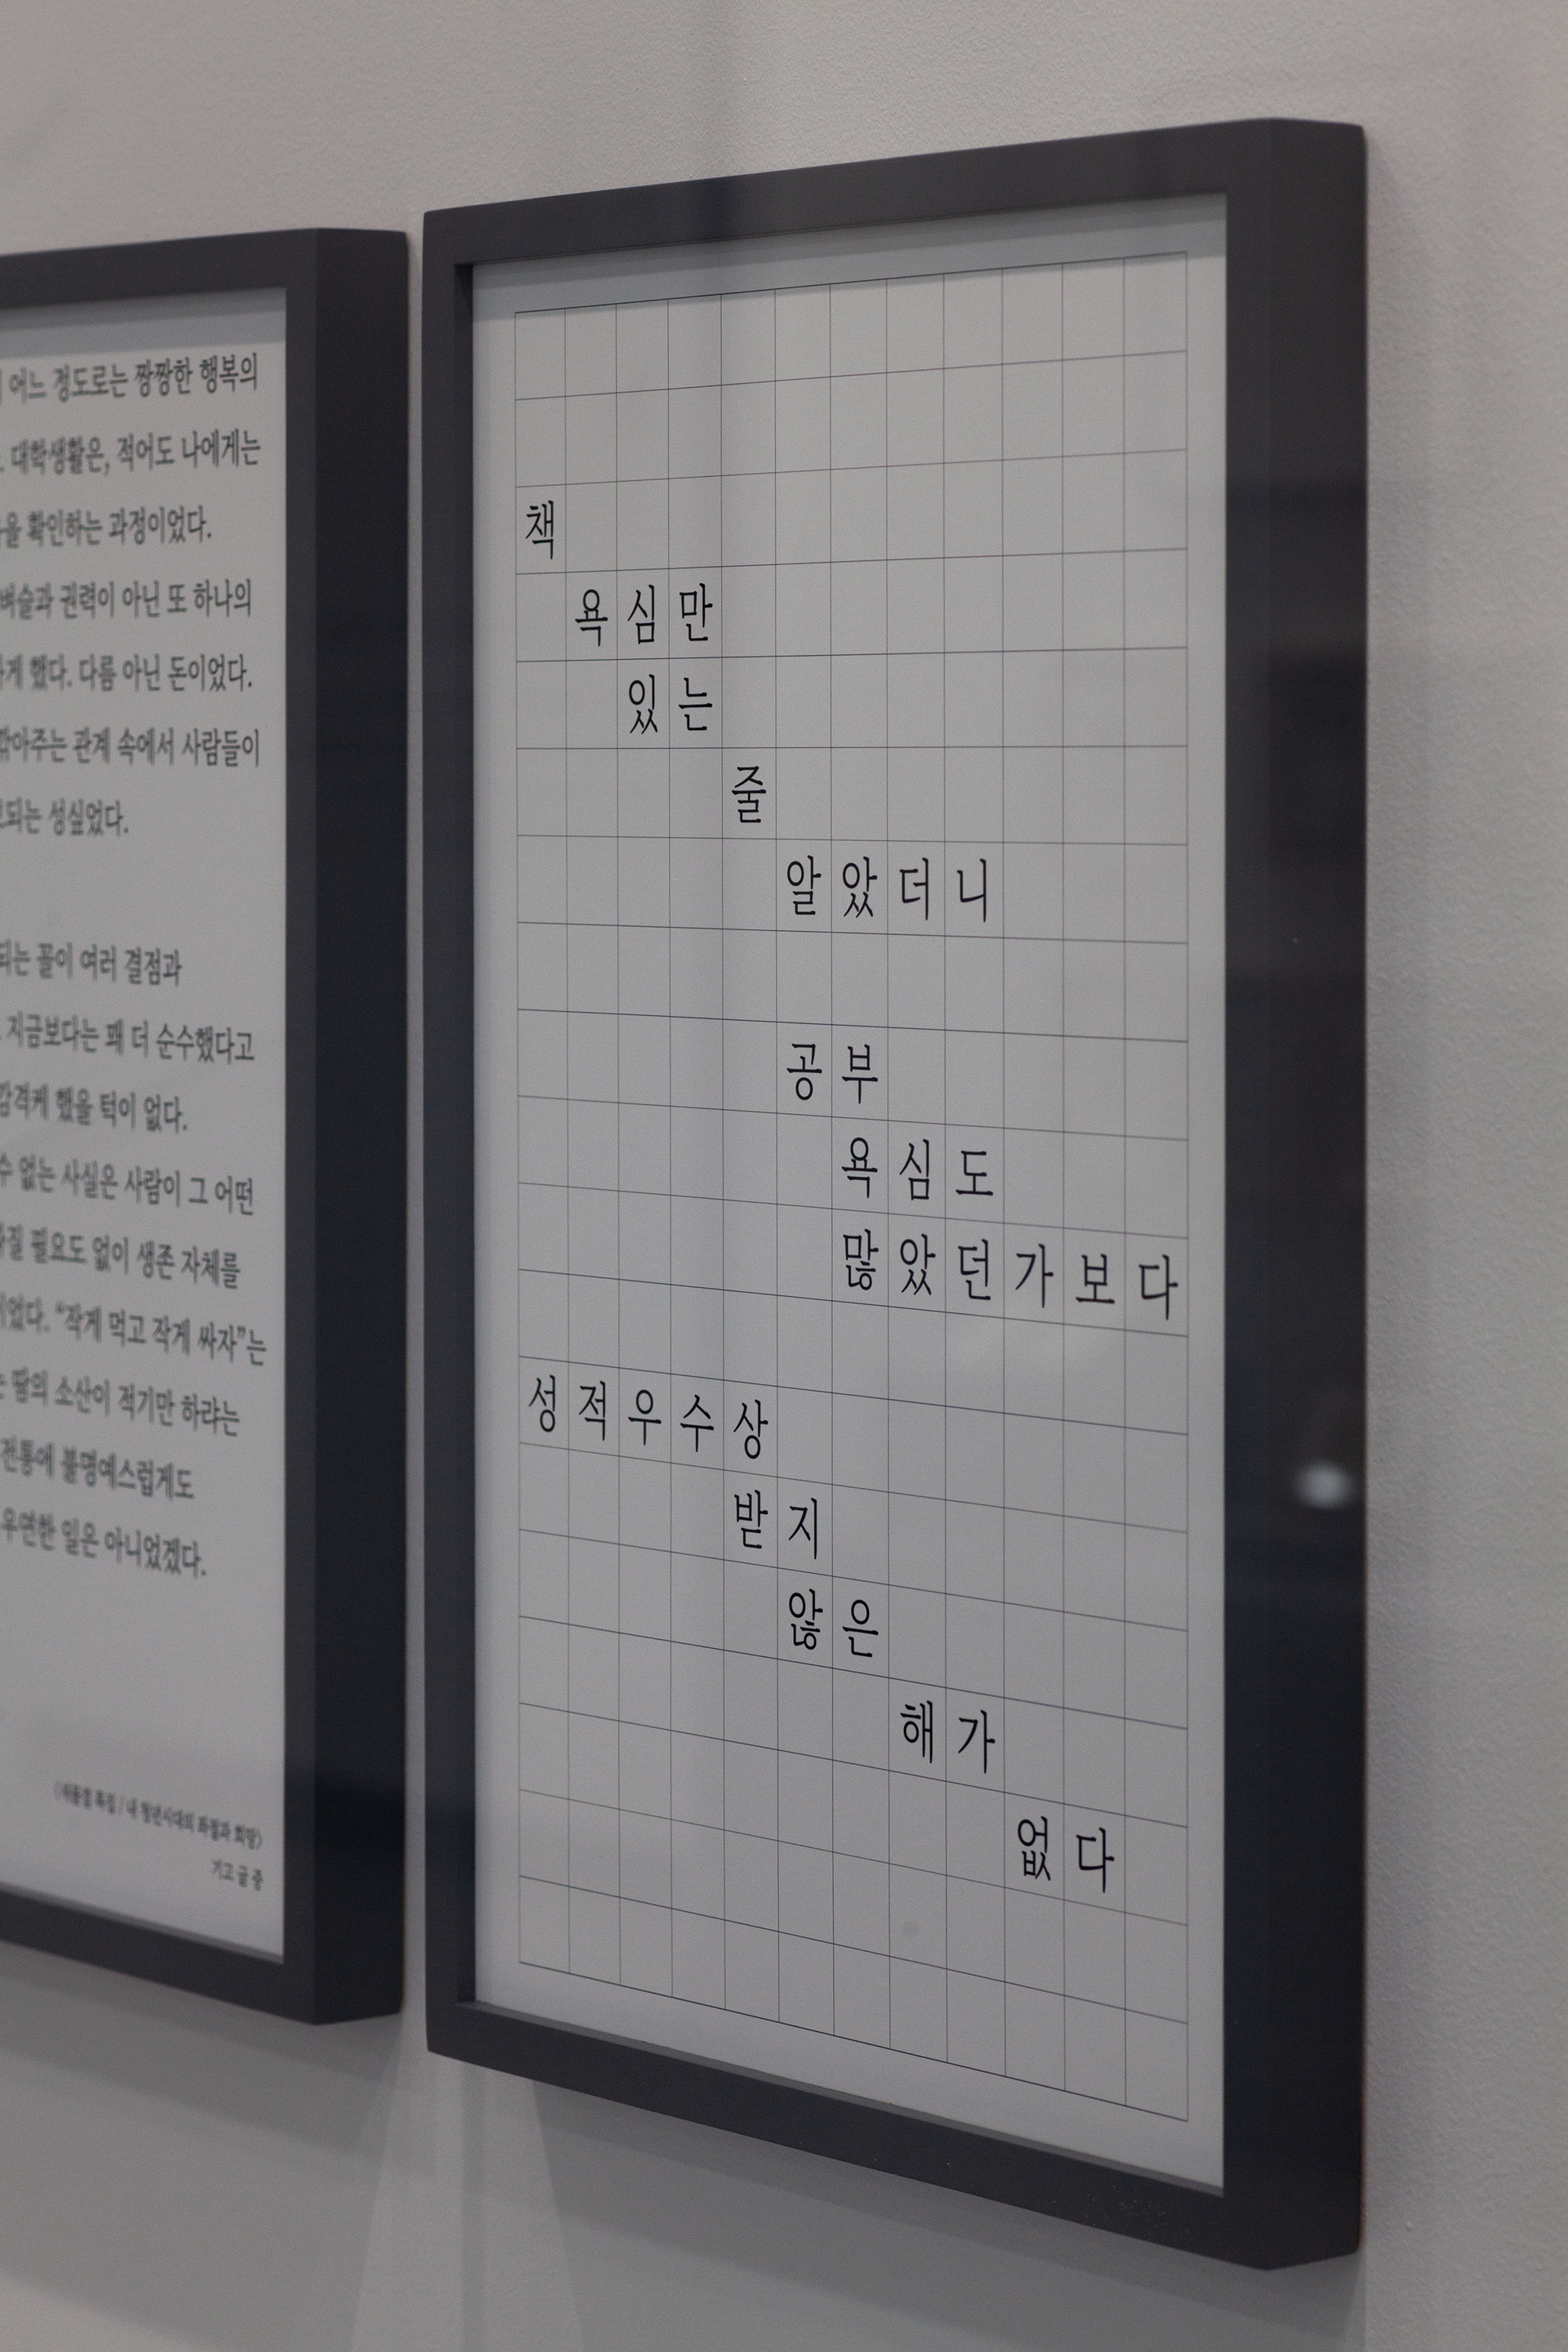 어느 정도로는 짱짱한 행복의
대학생활은, 적어도 나에게는
확인하는 과정이었다.
권력이 아닌 또 하나의
했다. 다름 아닌 돈이었다.
관계 속에서 사람들이
성싶었다.
되는 꼴이 여러 결점과
지금보다는 꽤 더 순수했다고
감격케 했을 턱이 없다.
수 없는 사실은 사람이 그 어떤
필요도 없이 생존 자체를
"작게 먹고 작게 싸자"는
땀의 소산이 적기만 하라는
전통에 불명예스럽게도
우연한 일은 아니었겠다.
기고 글 중
책
욕심만
있는
줄
알았더니
공부
욕심도
많았던가보다
성적우수상
받지
않은
해가
없다